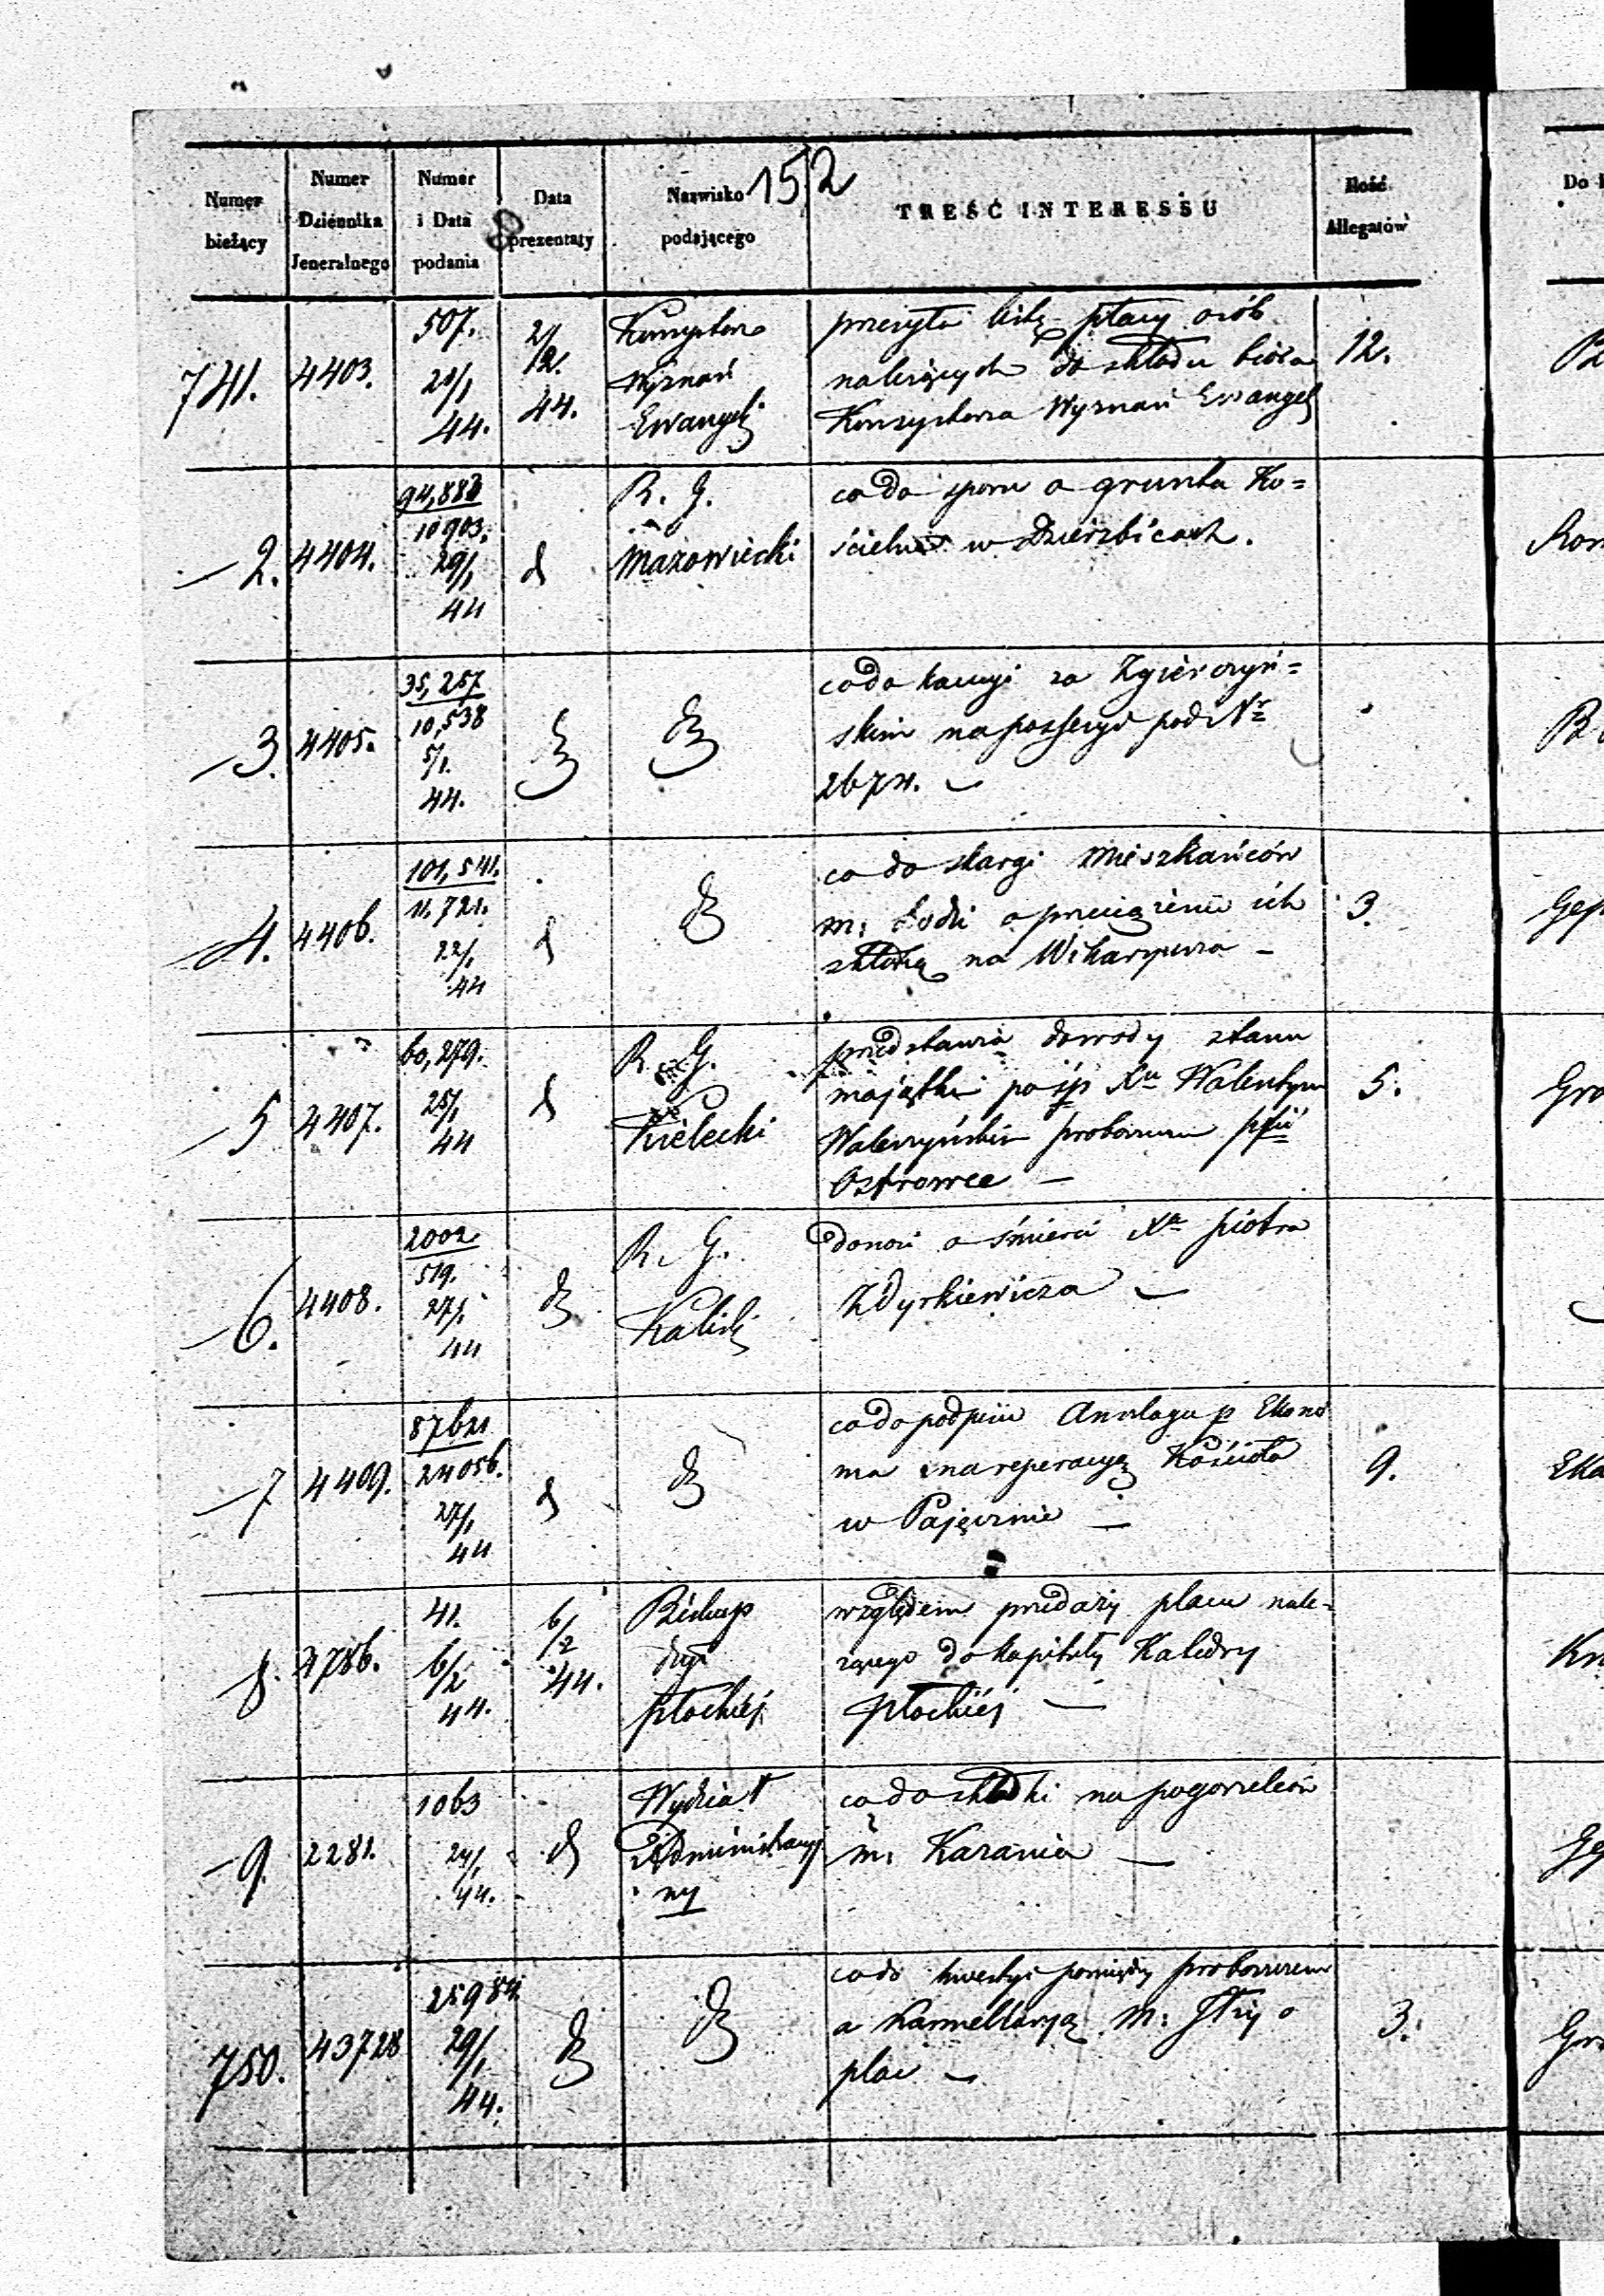 152
Numer bieżący
Numer Dziennika Jeneralnego
Numer i Data podania
Data prezentaty
Nazwisko podającego
TREŚĆ INTERESSU
Ilość Allegatów
741. 4403. 507. 44. 2/2. 44. Wyznań Ewangelj
przesyła listę płacy osób
należących do składu biora
Konsystorza Wyznań Ewangel
12.
2. 4404. 10903. 29/1 44 d R. G. Mazowiecki
co do sporu o grunta Ko=
ścielne w Dzierzbicach.
3. 4405. 35,257 10,538 5/1. 44.
co do kaucyi za Zgierczyń=
skim na possessyi pod Nr
267
4. 4406. 101,541. 11.721. 22/1 44 d
co do skargi Mieszkańców
m: Łodzi o przeciążeniu ich
składką na Wikaryusza
3.
5 4407. 60,279. 28/1 44 d R. G. Kielecki
przedstawia dowody stanu
majątku po śp Xu Walentym
proboszczu
Ostrowce
5.
6. 4408. 2002 519. 27/1 44 R. G. Kalisk
donosi o śmierci Xa Piotra
Zdyrkiewicza
7 4409. 24056. 27/1 44 d
co do podpisu Anszlagu p Ekono
ma na reperacyą Kościoła
w Pajęcznie
9.
8. 4786. 41. 6/2 44. 6/2 44. Biskup Płockiej
względem przedaży placu nale=
żącego do kapituły Katedry
Płockiej
9. 2281. 1063 24/1 44. d Wydział Administracyj
ny
co do składki na pogorzelców
m: Kazania
750. 43728 25984. 29/1 44.
co do kwestyi pomiędzy proboszczem
a Kamellaryą m: Iłży o
plac
3.